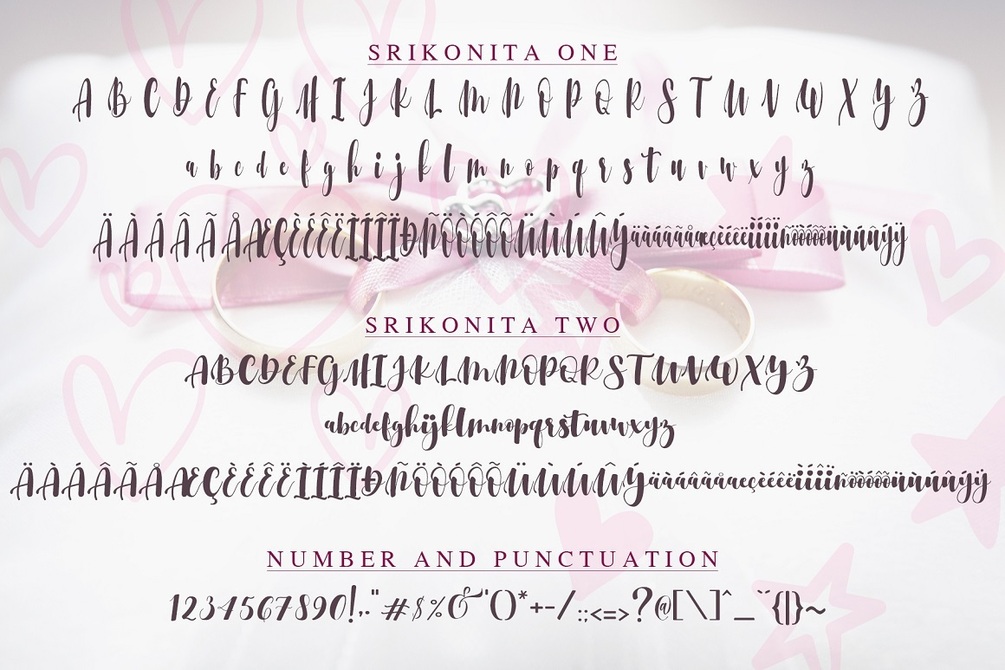 SRIKONITA ONE
A B C D E F G H I J K L M N O P Q R S T U V W X Y Z
a b c d e f g h i j k l m n o p q r s t u v w x y z
ÄÀÁÂÃÅÆÇÈÉÊËÌÍÎÏÐÑÖÒÓÔÕÜÙÚÛÝäàáâãåæçèéêëìíîïñöòóôõüùúûýÿ
SRIKONITA TWO
ABCDEFGHIJKLMNOPQRSTUVWXYZ
abcdefghijklmnopqrstuvwxyz
ÄÀÁÂÃÅÆÇÈÉÊËÌÍÎÏÐÑÖÒÓÔÕÜÙÚÛÝäàáâãåæçèéêëìíîïñöòóôõüùúûýÿ
NUMBER AND PUNCTUATION
1234567890!,."#$%&'()*+-/:;<=>?@[\]^_¨`{|}~